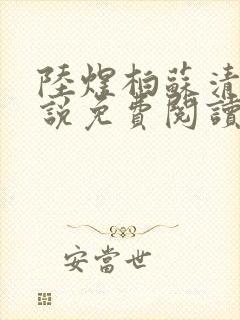 陸煌柏蘇清
說免費閱讀
安當世